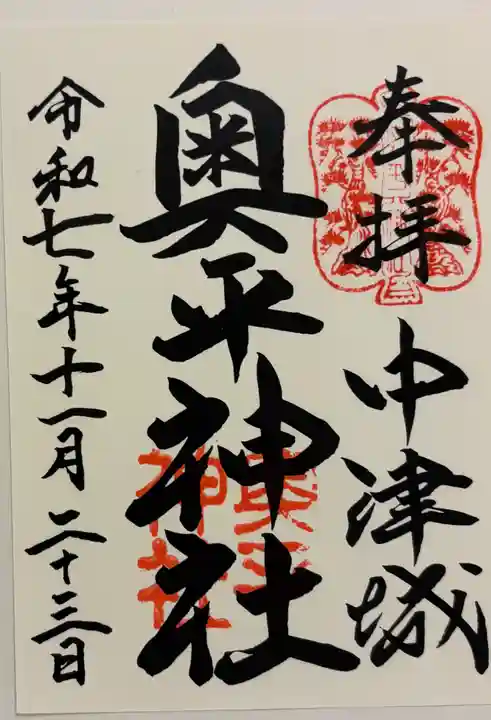 奉拝
中津城
奥平神社
奥平
神社
令和七年十一月二十三日